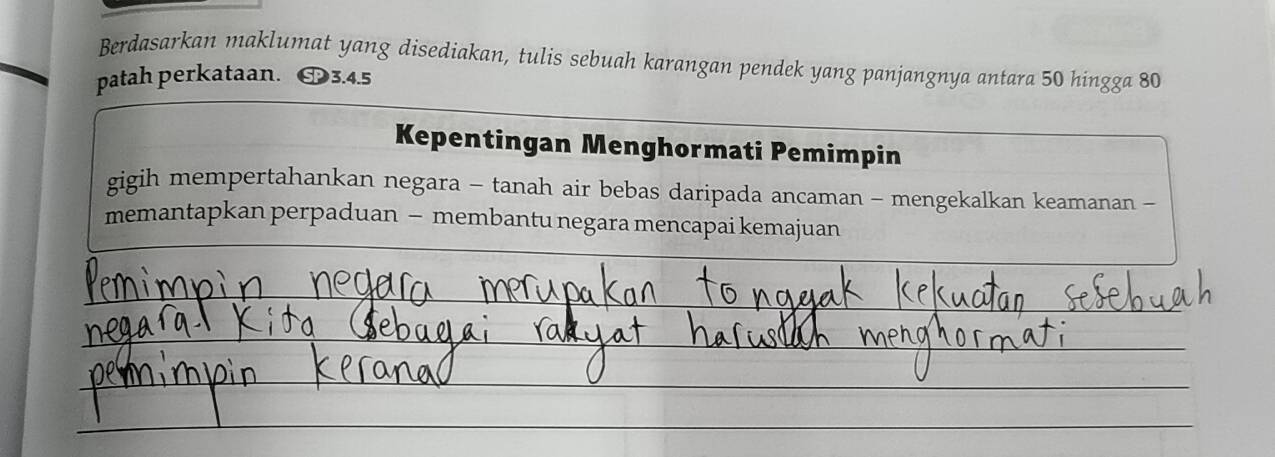 Berdasarkan maklumat yang disediakan, tulis sebuah karangan pendek yang panjangnya antara 50 hingga 80
patah perkataan. SP 3.4.5
Kepentingan Menghormati Pemimpin
gigih mempertahankan negara – tanah air bebas daripada ancaman – mengekalkan keamanan –
memantapkan perpaduan – membantu negara mencapai kemajuan
Pemimpin negara merupakan tonggak kekuatan sesebuah
negara. Kita sebagai rakyat haruslah menghormati
pemimpin kerana